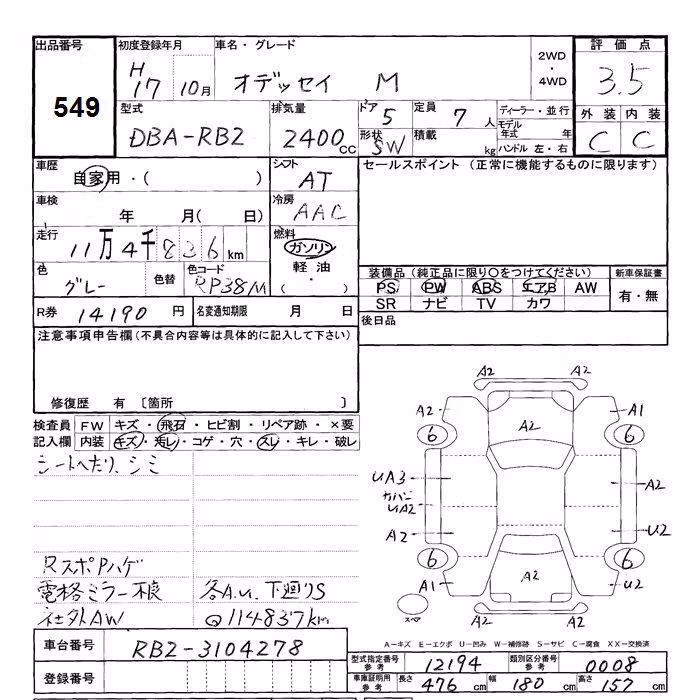 出品番号 初度登録年月 車名・グレード 2WD・4WD 評価点
549 H17 10月 オデッセイ M 3.5
型式 排気量 ドア 5 定員 7人 ディーラー・並行 外装 内装
DBA-RB2 2400cc 形状 SW 積載 kg モデル年式 年 C C
ハンドル 左・右
車歴 自家用・( ) シフト AT セールスポイント (正常に機能するものに限ります)
車検 年 月( 日) 冷房 AAC
走行 11万4千836km 燃料 ガソリン 軽油・( )
色 グレー 色替 色コード RP38M
装備品(純正品に限り○をつけてください) 新車保証書
PS PW ABS エアB AW 有・無
SR ナビ TV カワ
R券 14190円 名変通知期限 月 日 後日品
注意事項申告欄(不具合内容等は具体的に記入して下さい)
修復歴 有 〔箇所 〕
検査員記入欄 FW キズ・飛石・ヒビ割・リペア跡・×要
内装 キズ・汚レ・コゲ・穴・スレ・キレ・破レ
シートへたり、シミ
RスポPハゲ
電格ミラー不良 各A.U. 下廻りS
社外AW @114837km
A2 A2
A2 A1
6 A2 6
UA3 A2
カバン UA2
A2 A2 U2
6 6
A1 A2 U2
スペア A2 A2
A-キズ E-エクボ U-凹み W-補修跡 S-サビ C-腐食 XX-交換済
車台番号 RB2-3104278
型式指定番号 参考 12194 類別区分番号 参考 0008
登録番号
車庫証明用 参考 長さ 476cm 幅 180cm 高さ 157cm